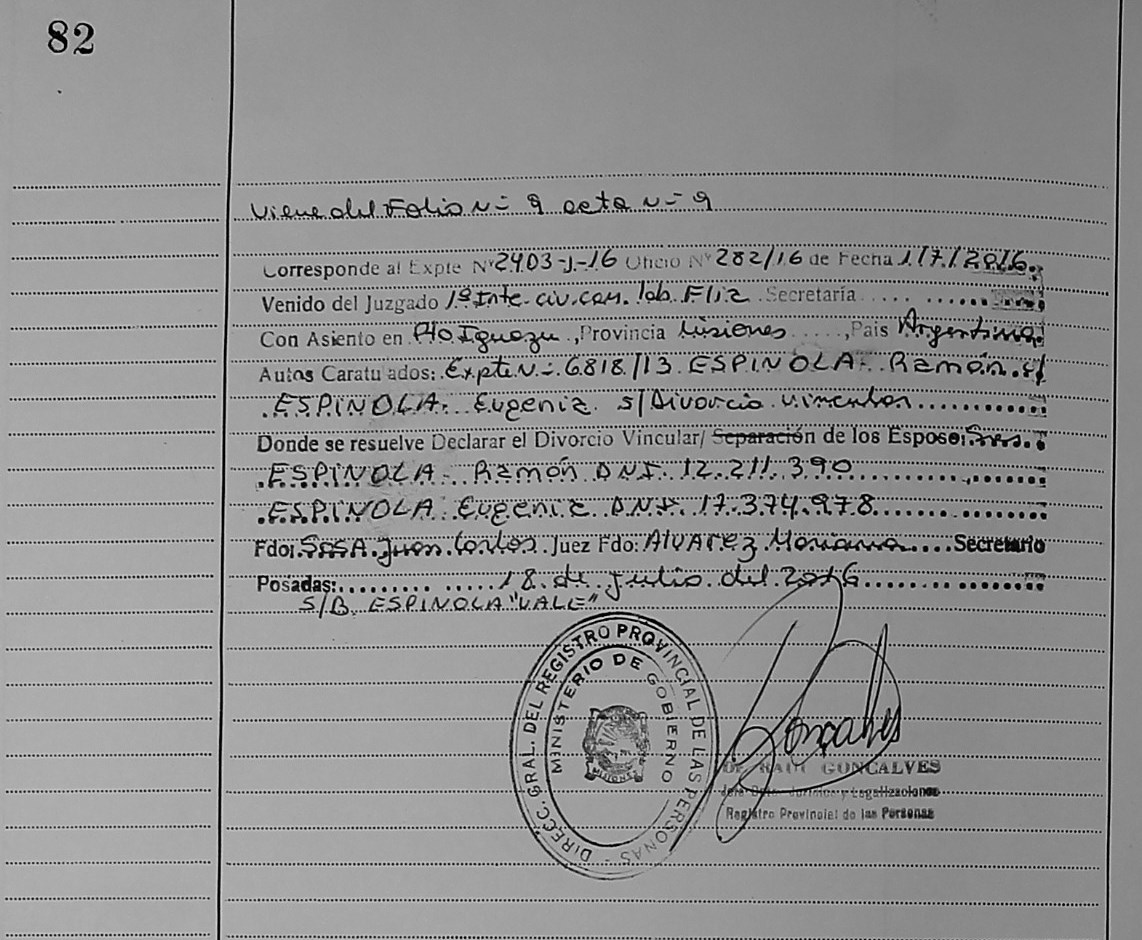 82
Viene del Folio N- 9 acta N- 9
Corresponde al Expte Nº 2403-J-16 Oficio Nº 282/16 de Fecha 1/7/2016.
Venido del Juzgado 1º Inte. civ. com. lab. Fliz Secretaría .... ......
Con Asiento en Pto. Iguazu, Provincia Misiones ....., Pais Argentina
Autos Caratu ados: Expte N- 6818/13 ESPINOLA Ramón c/
ESPINOLA Eugenia s/Divorcio vincular ..........
Donde se resuelve Declarar el Divorcio Vincular/ Separación de los Esposo: Sres.
ESPINOLA Ramón D.N.I. 12.211.390 ..........
ESPINOLA Eugenia D.N.I. 17.374.978 ..........
Fdo: SOSA Juan Carlos. Juez Fdo: Alvarez Mariana .... Secretario
Posadas: .......... 18 de Julio del 2016 ..........
S/B. ESPINOLA "VALE"
DIRECC. GRAL. DEL REGISTRO PROVINCIAL DE LAS PERSONAS -
MINISTERIO DE GOBIERNO
MISIONES
Gonçalves
RAUL GONCALVES
Jefe Dpto. Jurídico y Legalizaciones
Registro Provincial de las Personas